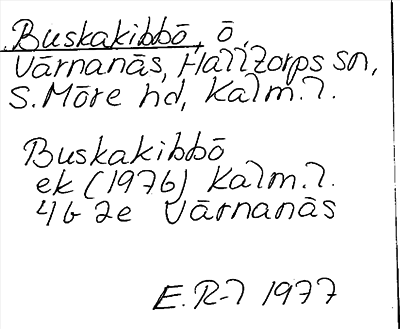 Buskakibbō, ō,
Värnanäs, Halltorps sn,
S. Möre hd, Kalm. l.
Buskakibbō
ek (1976) Kalm. l.
4G 2e Värnanäs
E. R-l 1977